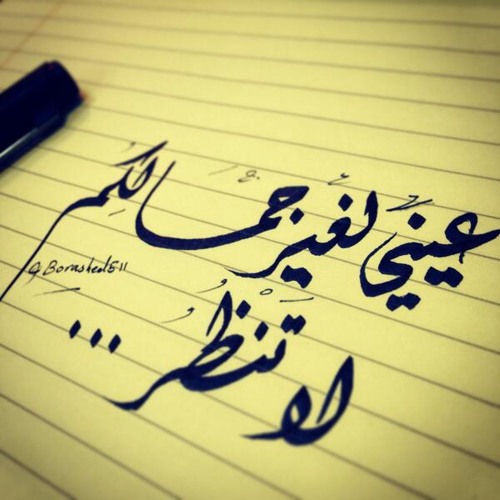 عيني لغير جمالكم
@Borashed511
لا تنظر ...